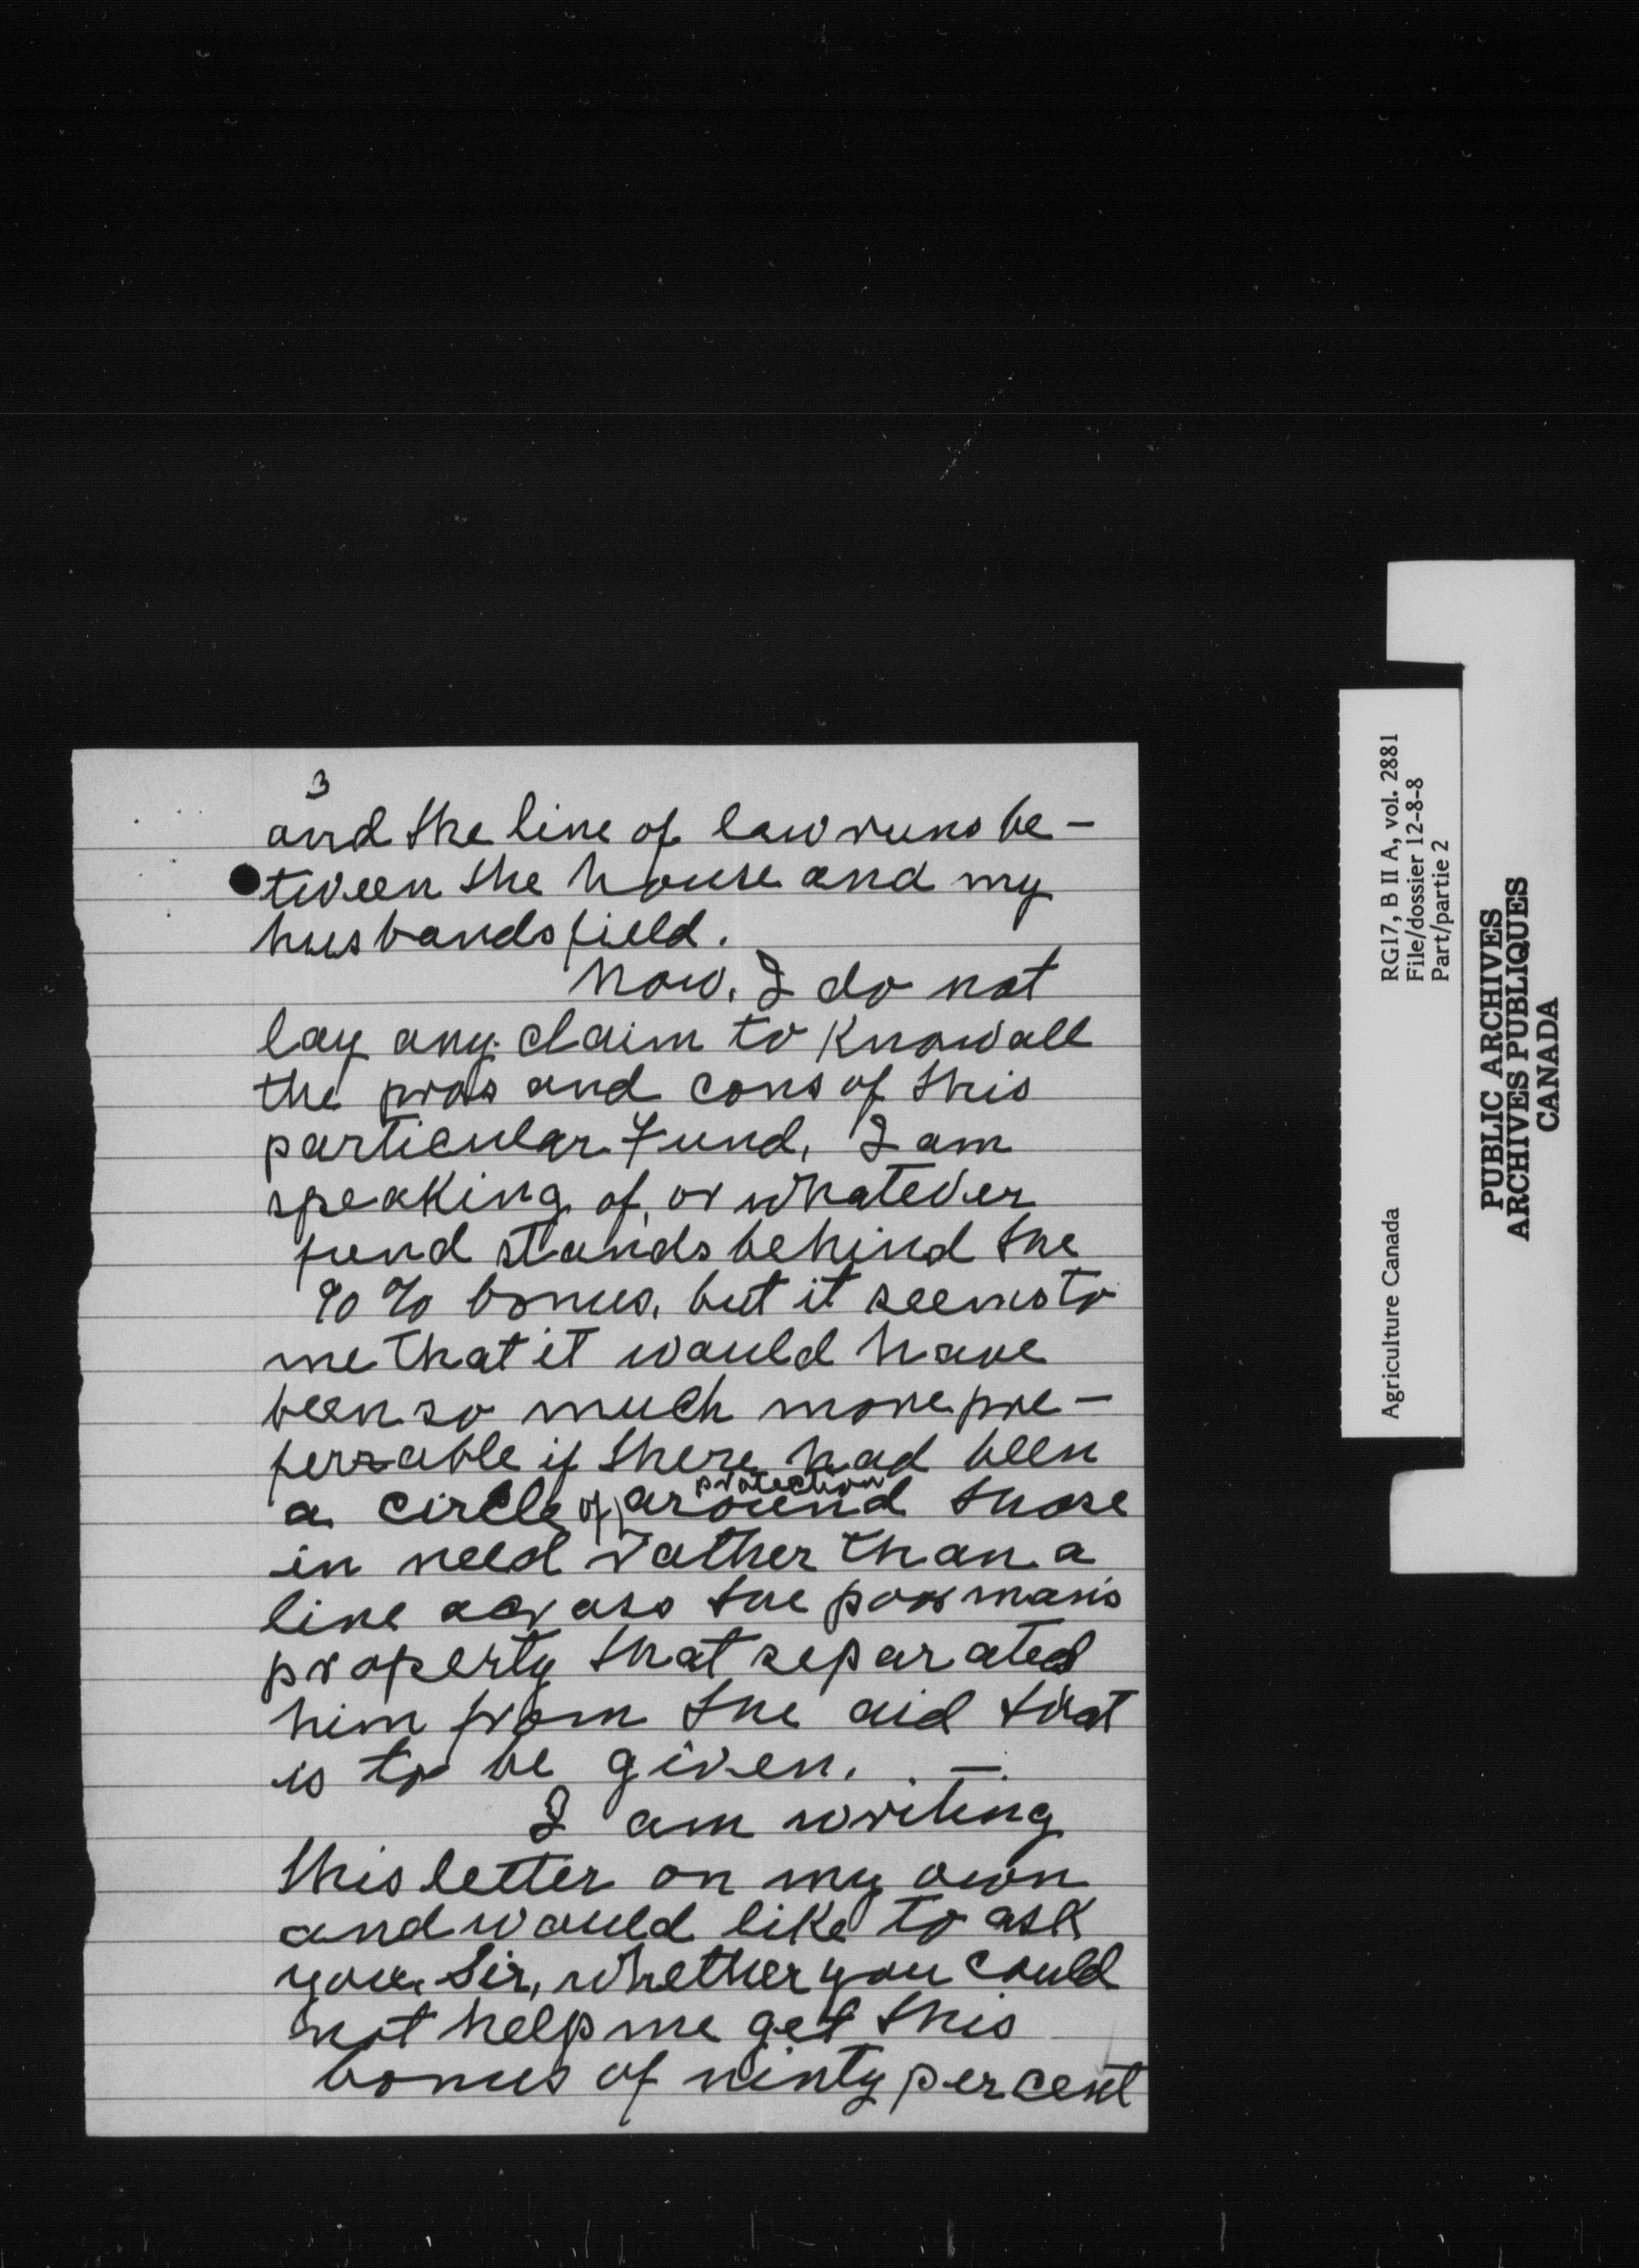 3
and the line of law runs be-
tween the house and my
husbands field.
Now. I do not
lay any claim to know all
the pros and cons of this
particular Fund, I am
speaking of, or whatever
fund stands behind the
90% bonus, but it seems to
me that it would have
been so much more pre-
ferrable if there had been
protection
a circle of around those
in need rather than a
line across the poor man's
property that separated
him from the aid that
is to be given. . —.
I am writing
this letter on my own
and would like to ask
you, Sir, whether you could
not help me get this
bonus of ninty percent
Agriculture Canada
RG17, B II A, vol. 2881
File/dossier 12-8-8
Part/partie 2
PUBLIC ARCHIVES
ARCHIVES PUBLIQUES
CANADA